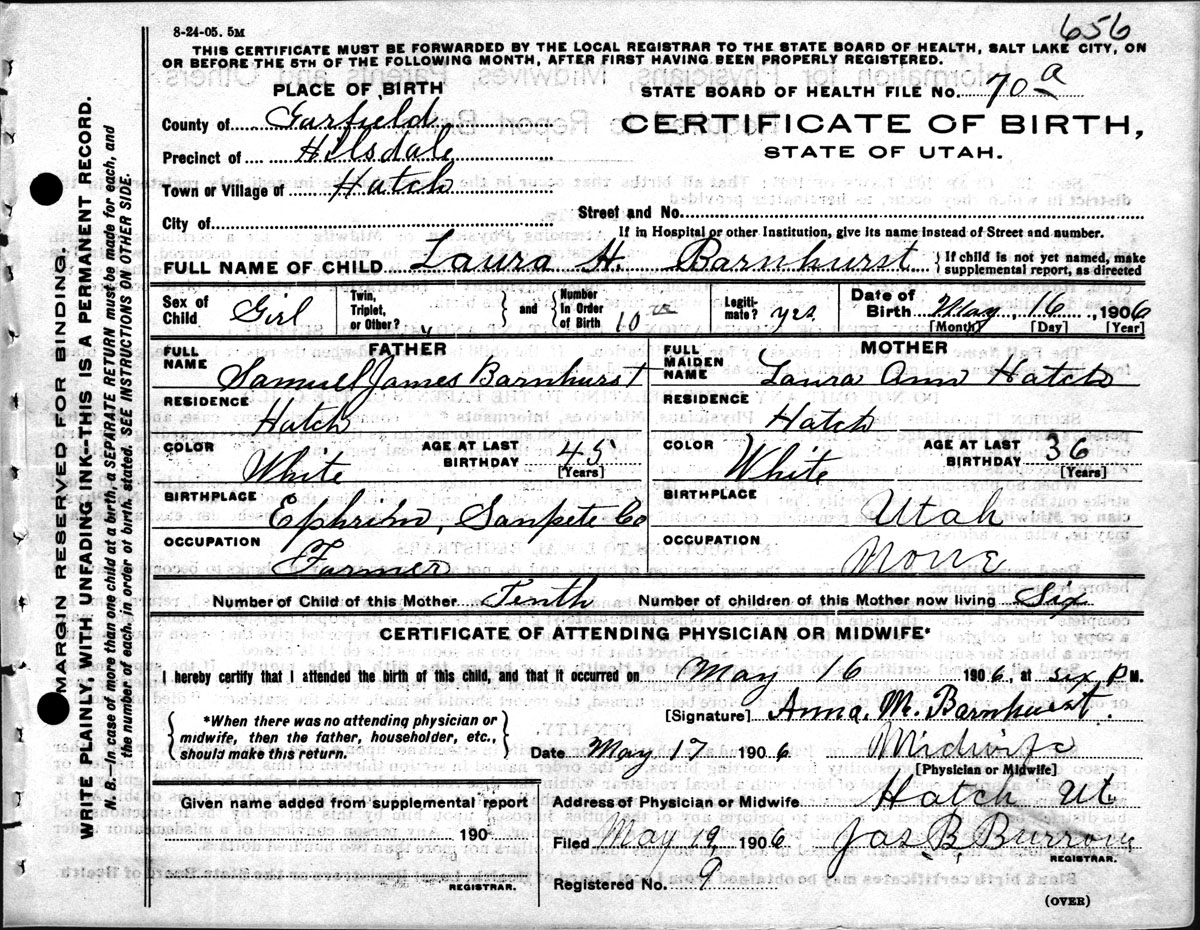 656
8-24-05. 5M
THIS CERTIFICATE MUST BE FORWARDED BY THE LOCAL REGISTRAR TO THE STATE BOARD OF HEALTH, SALT LAKE CITY, ON
OR BEFORE THE 5TH OF THE FOLLOWING MONTH, AFTER FIRST HAVING BEEN PROPERLY REGISTERED.
PLACE OF BIRTH
STATE BOARD OF HEALTH FILE NO. 70 a
County of Garfield
CERTIFICATE OF BIRTH,
Precinct of Hilsdale
STATE OF UTAH.
Town or Village of Hatch
City of
Street and No.
If in Hospital or other Institution, give its name instead of Street and number.
FULL NAME OF CHILD Laura H. Barnhurst { If child is not yet named, make
supplemental report, as directed
Sex of Child Girl Twin, Triplet, or Other? } and { Number in Order of Birth 10 Legiti-mate? yes Date of Birth May 16, 1906
[Month] [Day] [Year]
FATHER
FULL NAME Samuel James Barnhurst
RESIDENCE
Hatch
COLOR White AGE AT LAST BIRTHDAY 45
[Years]
BIRTHPLACE
Ephriem, Sanpete Co
OCCUPATION
Farmer
MOTHER
FULL MAIDEN NAME Laura Ann Hatch
RESIDENCE
Hatch
COLOR White AGE AT LAST BIRTHDAY 36
[Years]
BIRTHPLACE
Utah
OCCUPATION
None
Number of Child of this Mother Tenth Number of children of this Mother now living Six
CERTIFICATE OF ATTENDING PHYSICIAN OR MIDWIFE*
I hereby certify that I attended the birth of this child, and that it occurred on May 16 1906, at six P M.
[Signature] Anna. M. Barnhurst.
{ *When there was no attending physician or
midwife, then the father, householder, etc.,
should make this return. }
Date May 17 1906 Midwife
[Physician or Midwife]
Given name added from supplemental report
190
REGISTRAR.
Address of Physician or Midwife Hatch Ut
Filed May 19 1906 Jas B Burrow
REGISTRAR.
Registered No. 9
(OVER)
MARGIN RESERVED FOR BINDING.
WRITE PLAINLY, WITH UNFADING INK--THIS IS A PERMANENT RECORD.
N. B.--In case of more than one child at a birth a SEPARATE RETURN must be made for each, and
the number of each, in order of birth, stated. SEE INSTRUCTIONS ON OTHER SIDE.